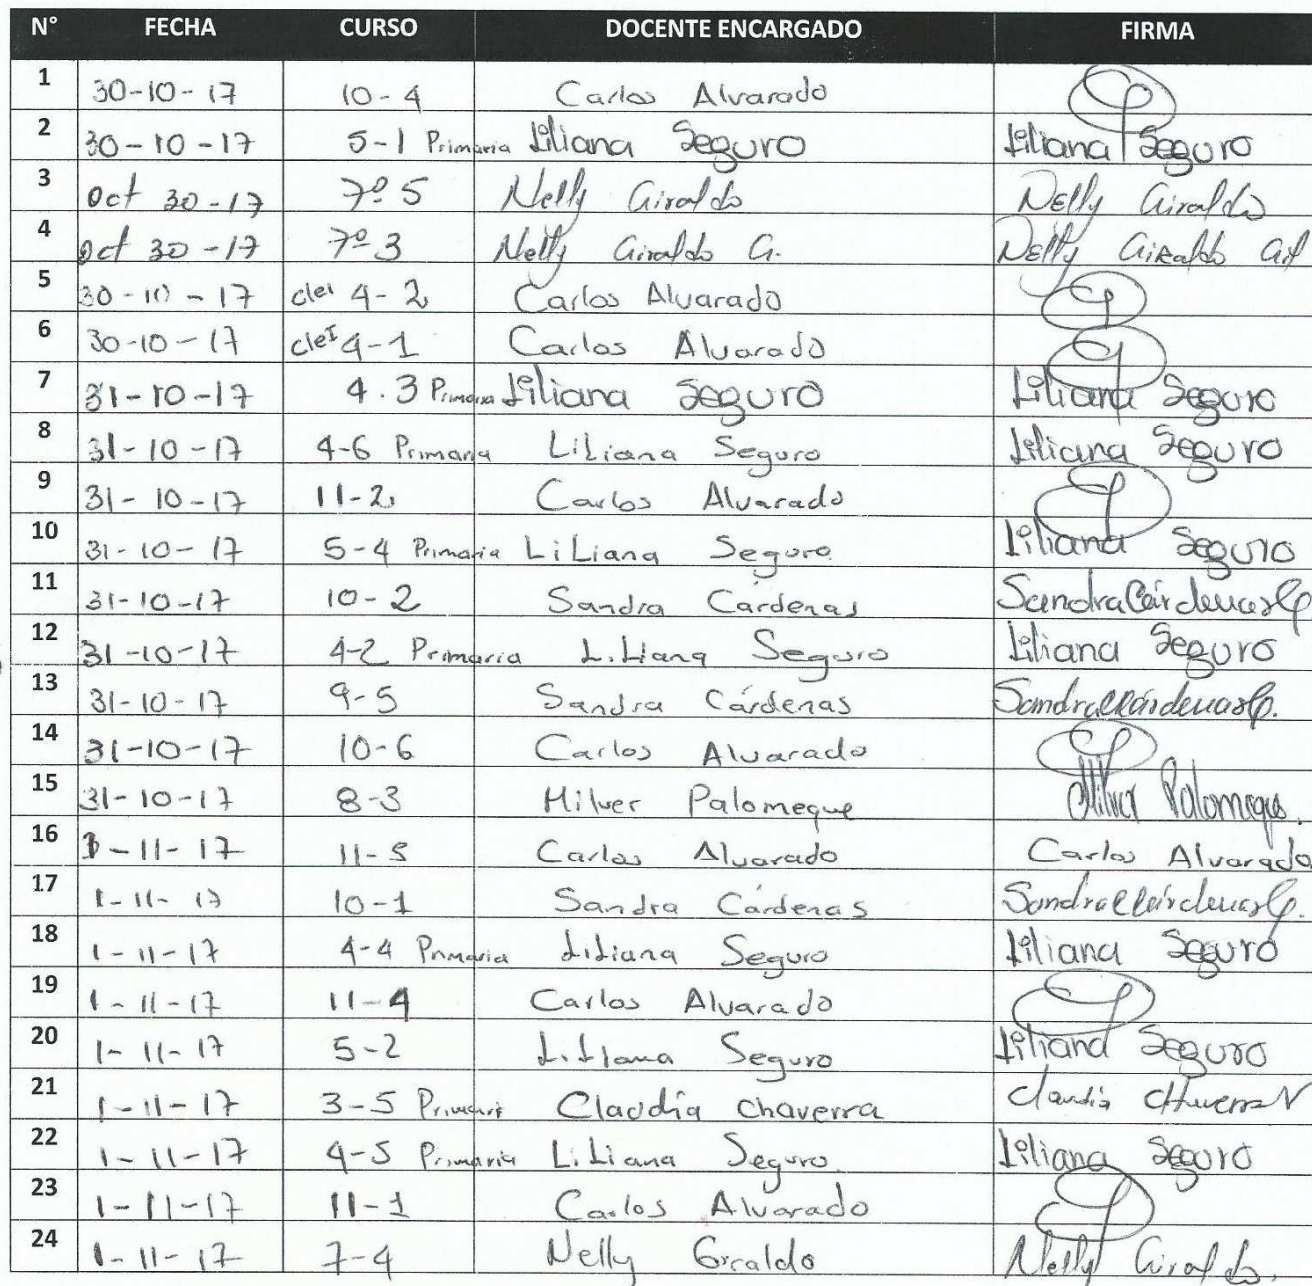 N° FECHA CURSO DOCENTE ENCARGADO FIRMA
1 30-10-17 10-4 Carlos Alvarado
2 30-10-17 5-1 Primaria Liliana Seguro Liliana Seguro
3 Oct 30-17 7º 5 Nelly Giraldo Nelly Giraldo
4 Oct 30-17 7º 3 Nelly Giraldo G. Nelly Giraldo
5 30-10-17 clei 4-2 Carlos Alvarado
6 30-10-17 cleI 4-1 Carlos Alvarado
7 31-10-17 4.3 Primaria Liliana Seguro Liliana Seguro
8 31-10-17 4-6 Primaria LiLiana Seguro Liliana Seguro
9 31-10-17 11-2 Carlos Alvarado
10 31-10-17 5-4 Primaria LiLiana Seguro Liliana Seguro
11 31-10-17 10-2 Sandra Cárdenas Sandra Cárdenas
12 31-10-17 4-2 Primaria LiLiana Seguro Liliana Seguro
13 31-10-17 9-5 Sandra Cárdenas Sandra Cárdenas
14 31-10-17 10-6 Carlos Alvarado
15 31-10-17 8-3 Milver Palomeque Milver Palomeque
16 1-11-17 11-5 Carlos Alvarado Carlos Alvarado
17 1-11-17 10-1 Sandra Cárdenas Sandra Cárdenas
18 1-11-17 4-4 Primaria Liliana Seguro Liliana Seguro
19 1-11-17 11-4 Carlos Alvarado
20 1-11-17 5-2 Liliana Seguro Liliana Seguro
21 1-11-17 3-5 Claudia chaverra Claudia
22 1-11-17 4-5 Primaria LiLiana Seguro Liliana Seguro
23 1-11-17 11-1 Carlos Alvarado
24 1-11-17 7-4 Nelly Giraldo Nelly Giraldo